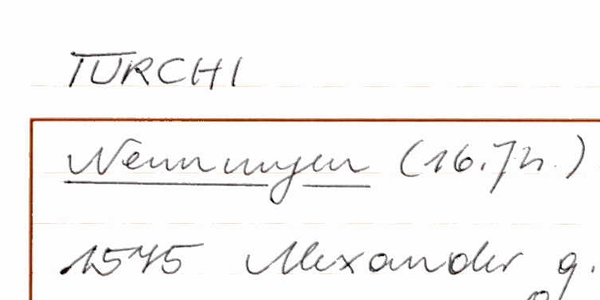 TURCHI
Nenningen (16. Jh.)
1545 Alexander g.